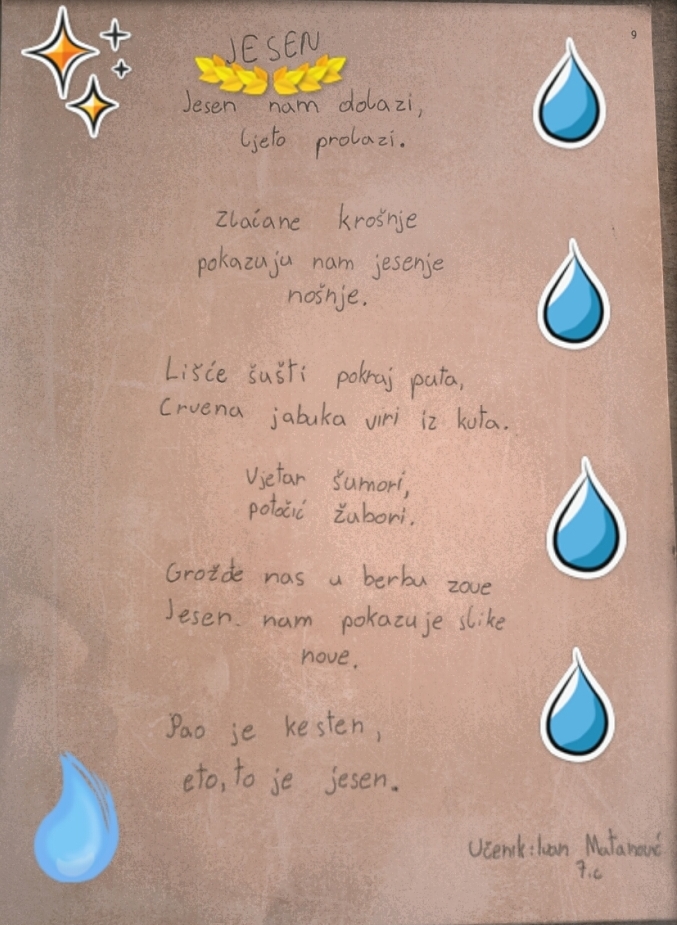 9
JESEN
Jesen nam dolazi,
ljeto prolazi.
Zlaćane krošnje
pokazuju nam jesenje
nošnje.
Lišće šušti pokraj puta,
Crvena jabuka viri iz kuta.
Vjetar šumori,
potočić žubori.
Grožđe nas u berbu zove
Jesen nam pokazuje slike
nove.
Pao je kesten,
eto, to je jesen.
Učenik: Ivan Matanović
7.c